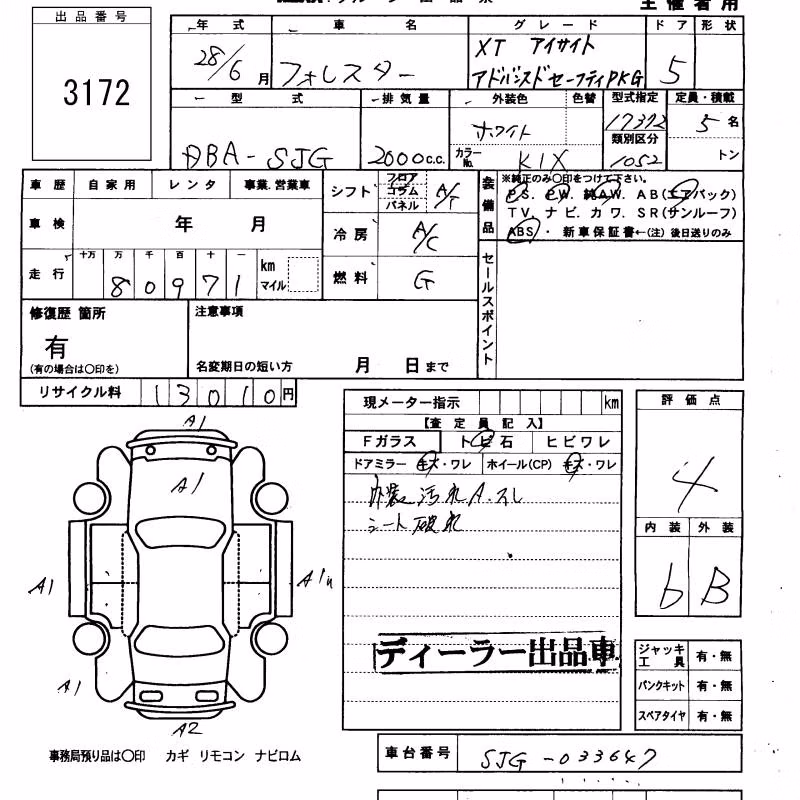 主催者用
出品番号
3172
年式 車名 グレード ドア 形状
28/6月 フォレスター XT アイサイト
アドバンスドセーフティPKG 5
型式 排気量 外装色 色替 型式指定 定員・積載
DBA-SJG 2000c.c. ホワイト 17372 5名
カラーNo. K1X 類別区分 1052 トン
車歴 自家用 レンタ 事業.営業車
車検 年 月
走行 十万 万 千 百 十 一
80971 km マイル
シフト フロア コラム パネル A/T
冷房 A/C
燃料 G
装備品
※純正のみ〇印をつけて下さい。
P.S. P.W. 純A.W. A B (エアバック)
T V. ナ ビ. カ ワ. S R (サンルーフ)
ABS ・ 新車保証書←(注) 後日送りのみ
セールスポイント
修復歴 箇所
有
(有の場合は〇印を)
注意事項
名変期日の短い方 月 日まで
リサイクル料 13010円
現メーター指示 km
【査定員記入】
Fガラス トビ石 ヒビワレ
ドアミラー キズ・ワレ ホイール(CP) キズ・ワレ
外装汚れA.スレ
シート破れ
ディーラー出品車
評価点
4
内装 外装
b B
ジャッキ工具 有・無
パンクキット 有・無
スペアタイヤ 有・無
A1
A1
A1
A1
A1
A2
事務局預り品は〇印 カギ リモコン ナビロム
車台番号 SJG-033647